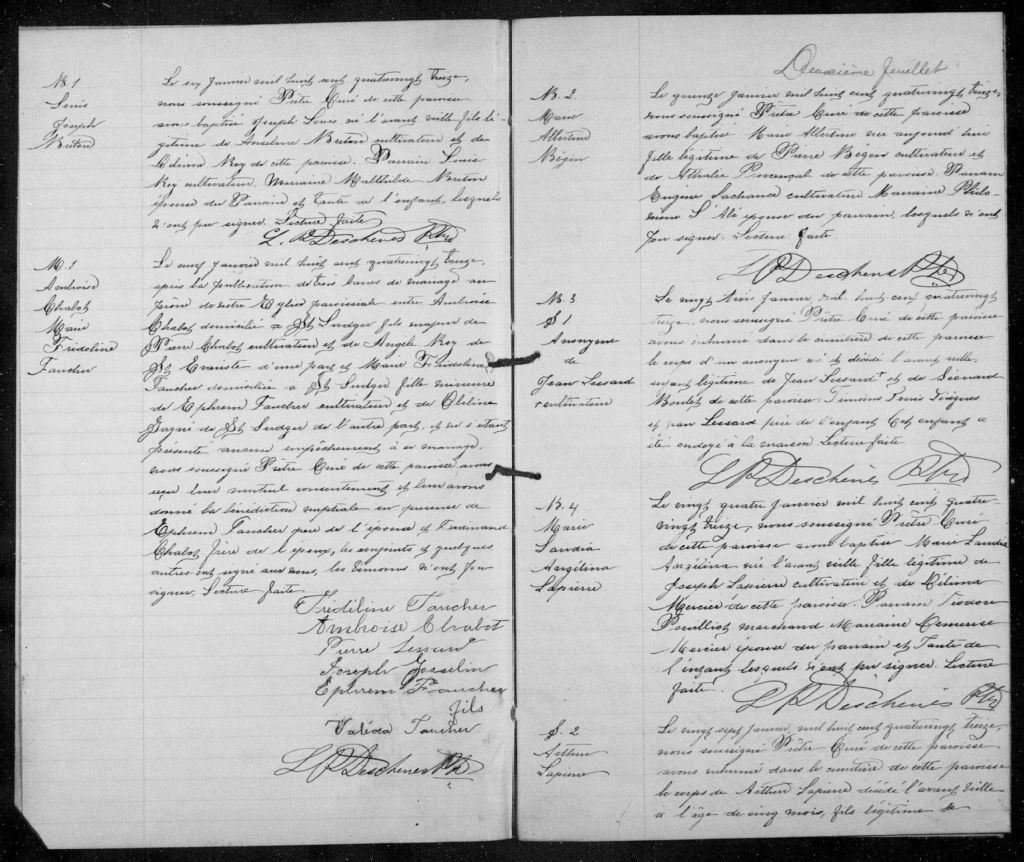 B. 1
Louis
Joseph
Breton
Le six Janvier mil huit cent quatrevingt treize,
nous soussigné Prêtre Curé de cette paroisse
avons baptisé Joseph Louis né l'avant veille fils lé-
gitime de Anselme Breton cultivateur et de
Célina Roy de cette paroisse. Parrain Louis
Roy cultivateur Marraine Malthilde Breton
épouse du Parrain et tante de l'enfant, lesquels
n'ont pu signer. Lecture faite
L. P. Deschenes Ptre
M. 1
Ambroise
Chabot
&
Marie
Fridéline
Faucher
Le neuf Janvier mil huit cent quatrevingt treize,
après la publication de trois bancs de mariage au
prône de notre Eglise paroissiale entre Ambroise
Chabot domicilié à St Ludger fils majeur de
Pierre Chabot cultivateur et de Angèle Roy de
St Evariste d'une part et Marie Fridéline
Faucher domiciliée à St Ludger fille mineure
de Ephrem Faucher cultivateur et de Obéline
Gagné de St Ludger de l'autre part, et ne s'étant
présenté aucun empêchement à ce mariage
nous soussigné Prêtre Curé de cette paroisse avons
reçu leur mutuel consentement et leur avons
donné la bénédiction nuptiale en présence de
Ephrem Faucher père de l'épouse et Ferdinand
Chabot frère de l'époux, les conjoints et quelques
autres ont signé avec nous, les témoins n'ont pu
signer. Lecture faite.
Fridéline Faucher
Ambroise Chabot
Pierre Lessard
Joseph Josselin
Ephrem Faucher
fils
Valéda Faucher
L P Deschenes Ptre
Deuxième feuillet
B. 2
Marie
Albertine
Bégin
Le quinze Janvier mil huit cent quatrevingt treize,
nous soussigné Prêtre Curé de cette paroisse
avons baptisé Marie Albertine née aujourd'hui
fille légitime de Pierre Bégin cultivateur et
de Athalie Provençal de cette paroisse. Parrain
Eugène Lachance cultivateur Marraine Philo-
mène L'Ab épouse du parrain, lesquels n'ont
pu signer. Lecture faite.
L P Deschenes Ptre
B. 3
S 1
Anonyme
de
Jean Lessard
cultivateur
Le vingt trois Janvier mil huit cent quatrevingt
treize, nous soussigné Prêtre Curé de cette paroisse
avons inhumé dans le cimetière de cette paroisse
le corps d'un anonyme né et décédé l'avant veille,
enfant légitime de Jean Lessard et de Léonard
Boulet de cette paroisse. Témoins Louis
et Jean Lessard père de l'enfant Cet enfant a
été ondoyé à la maison Lecture faite
L P Deschenes Ptre
B. 4
Marie
Laudia
Angélina
Lapierre
Le vingt quatre Janvier mil huit cent quatre-
vingt treize, nous soussigné Prêtre Curé
de cette paroisse avons baptisé Marie Laudia
Angélina née l'avant veille fille légitime de
Joseph Lapierre cultivateur et de Célina
Mercier de cette paroisse. Parrain
Pouilliot marchand Marraine
Mercier épouse du parrain et Tante de
l'enfant lesquels n'ont pu signer. Lecture
faite.
L P Deschenes Ptre
S. 2
Arthur
Lapierre
Le vingt sept Janvier, mil huit cent quatrevingt treize,
nous soussigné Prêtre Curé de cette paroisse
avons inhumé dans le cimetière de cette paroisse
le corps de Arthur Lapierre décédé l'avant veille
à l'âge de cinq mois, fils légitime de